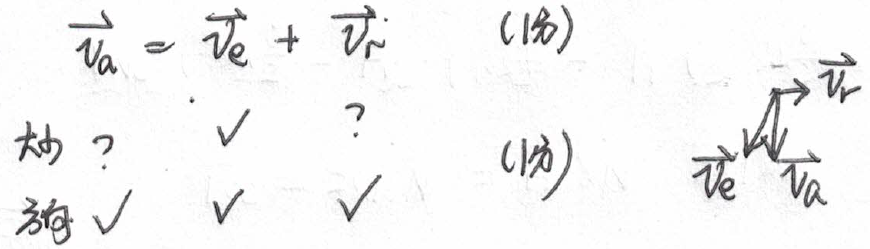 $\vec{v_a} = \vec{v_e} + \vec{v_r}$ (1分)
大小 ? ✓ ? (1分)
方向 ✓ ✓ ✓
$\vec{v_r}$
$\vec{v_e}$ $\vec{v_a}$